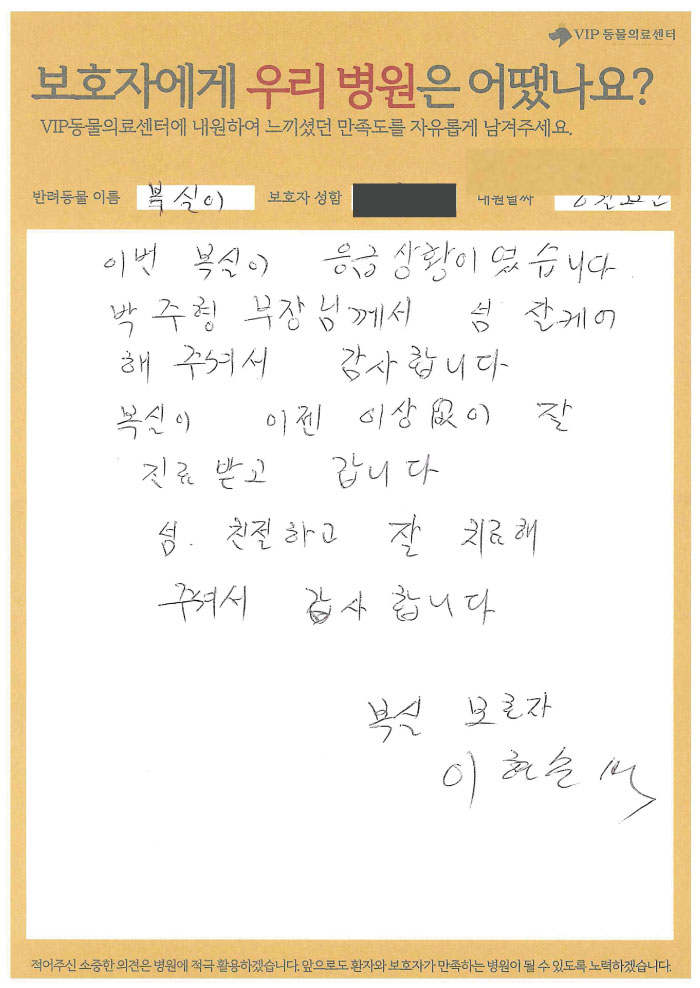 VIP 동물의료센터
보호자에게 우리 병원은 어땠나요?
VIP동물의료센터에 내원하여 느끼셨던 만족도를 자유롭게 남겨주세요.
반려동물 이름 복실이 보호자 성함 내원날짜
이번 복실이 응급상황이였습니다
박주형 부장님께서 넘 잘케어
해 주셔서 감사합니다
복실이 이젠 이상 없이 잘
진료받고 갑니다
넘. 친절하고 잘 치료해
주셔서 감사합니다
복실 보호자
적어주신 소중한 의견은 병원에 적극 활용하겠습니다. 앞으로도 환자와 보호자가 만족하는 병원이 될 수 있도록 노력하겠습니다.